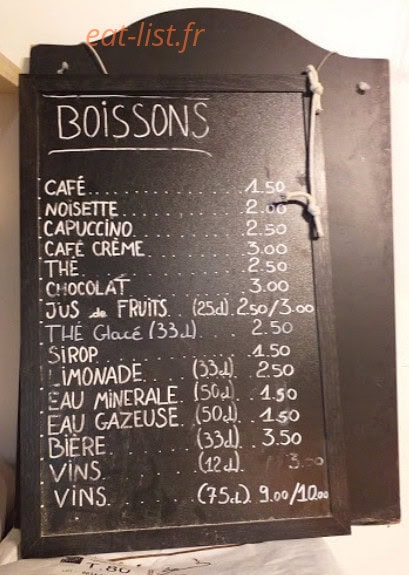 eat-list.fr
BOISSONS
CAFÉ........................1.50
NOISETTE....................2.00
CAPUCCINO...................2.50
CAFÉ CRÈME..................3.00
THÉ.........................2.50
CHOCOLAT....................3.00
JUS de FRUITS. (25cl).2.50/3.00
THÉ Glacé (33cl)....... 2.50
SIROP.......................1.50
LIMONADE.......(33cl). 2.50
EAU MINERALE.(50cl). .1.50
EAU GAZEUSE.(50cl). .1.50
BIÈRE..........(33cl). .3.50
VINS...........(12cl) 3.50
VINS...........(75cl). 9.00/10.00
T.80